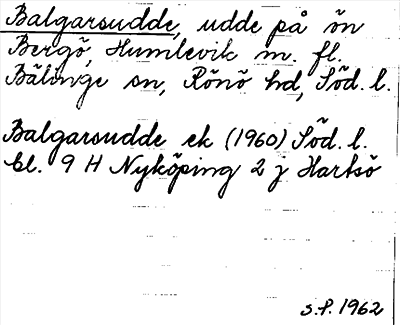 Balgarsudde, udde på ön
Bergö, Humlevik m. fl.
Bälinge sn, Rönö hd, Söd. l.
Balgarsudde ek (1960) Söd. l.
bl. 9 H Nyköping 2 j Hartsö
S.P. 1962